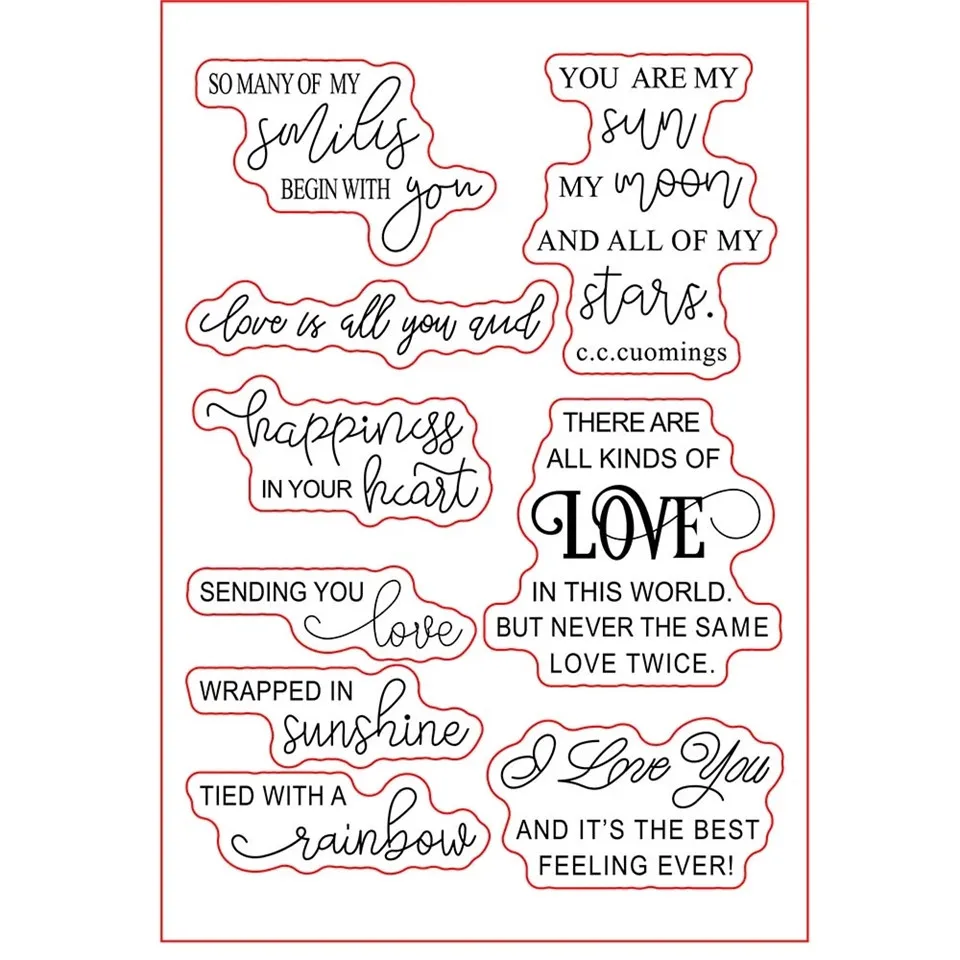 SO MANY OF MY
smiles
BEGIN WITH you
love is all you and
happiness
IN YOUR heart
SENDING YOU
love
WRAPPED IN
sunshine
TIED WITH A
rainbow
YOU ARE MY
sun
MY moon
AND ALL OF MY
stars.
c.c.cuomings
THERE ARE
ALL KINDS OF
LOVE
IN THIS WORLD.
BUT NEVER THE SAME
LOVE TWICE.
I Love You
AND IT'S THE BEST
FEELING EVER!